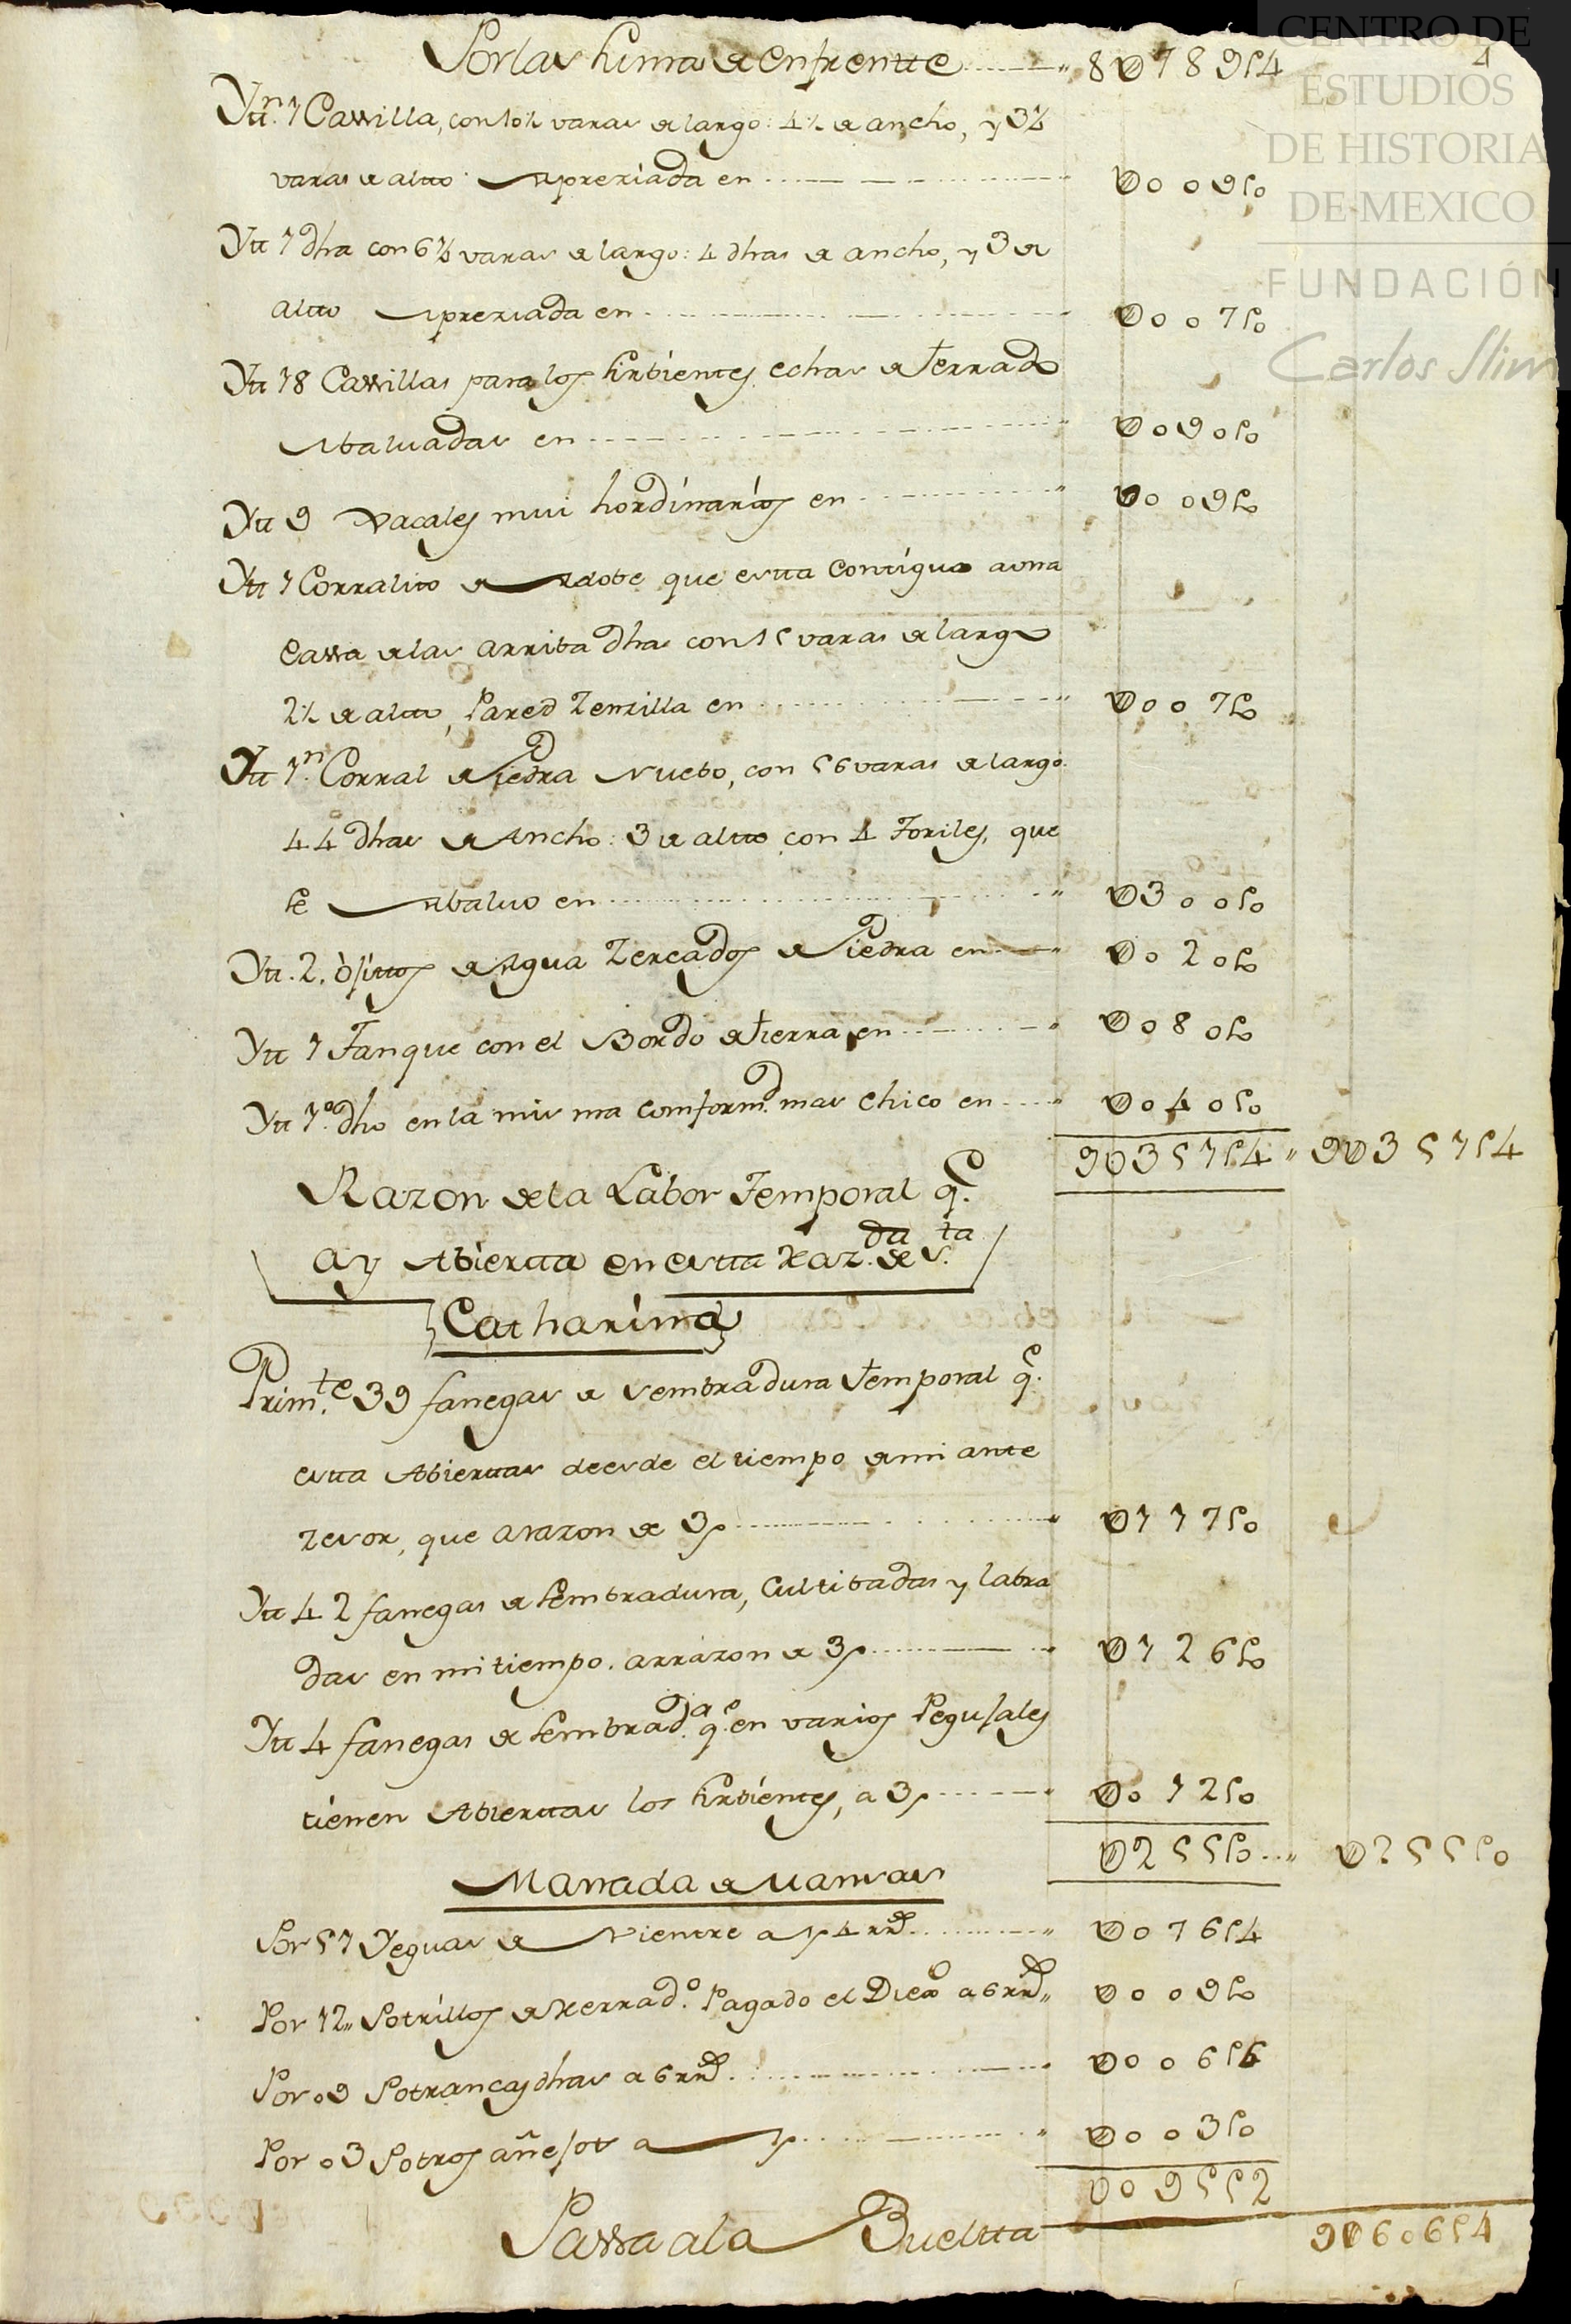 CENTRO DE
ESTUDIOS
DE HISTORIA
DE MEXICO
FUNDACIÓN
Carlos Slim
4
Por las Suma de enfrentte 8U789p4
Ytt.n 1 Cassilla, con 10½ varas de largo: 4½ de ancho, y 3½
varas de altto Apreziada en U009p0
Ytt 1 dha con 6½ varas de largo: 4 dhas de ancho, y 3 de
altto Apreziada en U007p0
Ytt 18 Cassillas para los Sirbientes echas de terrado
Abaluadas en U090p0
Ytt 9 Xacales mui hordinarios en U009p0
Ytt 1 Corralito de Adobe que estta Contiguo a una
Cassa de las arriba dhas con 15 varas de largo
2½ de altto, Pared Zenzilla en U007p0
Ytt 1n Corral de Piedra Nuebo, con 56 varas de largo
44 dhas de Ancho: 3 de altto con 4 Toriles, que
se Abaluo en U300p0
Ytt. 2. ojittos de Agua Zercados de Piedra en U020p0
Ytt 1 Tanque con el Bordo de tierra en U080p0
Ytt 1o dho en la misma comformd mas chico en U040p0
9U351p4 9U351p4
Razon de la Labor Temporal q.e
ay Abiertta en estta Haz.da de S.ta
Catharina
Prim.te 39 fanegas de sembradura temporal q.e
estta Abierttas deesde el tiempo de mi ante
zesor, que a razon de 3p U117p0
Ytt 42 fanegas de Sembradura, Cultibadas y labra
das en mi tiempo. arrazon de 3p U126p0
Ytt 4 fanegas de Sembrad.a q.e en varios Pegujales
tienen Abierttas los Sirbientes, a 3p U012p0
U255p0 U255p0
Manada de Mansas
Por 51 Yeguas de Vientre a 1p 4 rrs U076p4
Por 12 Potrillos de Herrad.o Pagado el Diezmo a 6 rrs U009p0
Por 09 Potrancas dhas a 6 rrs U006p6
Por 03 Potros añejos a 1p U003p0
U095p2
Passa a la Bueltta 9U606p4